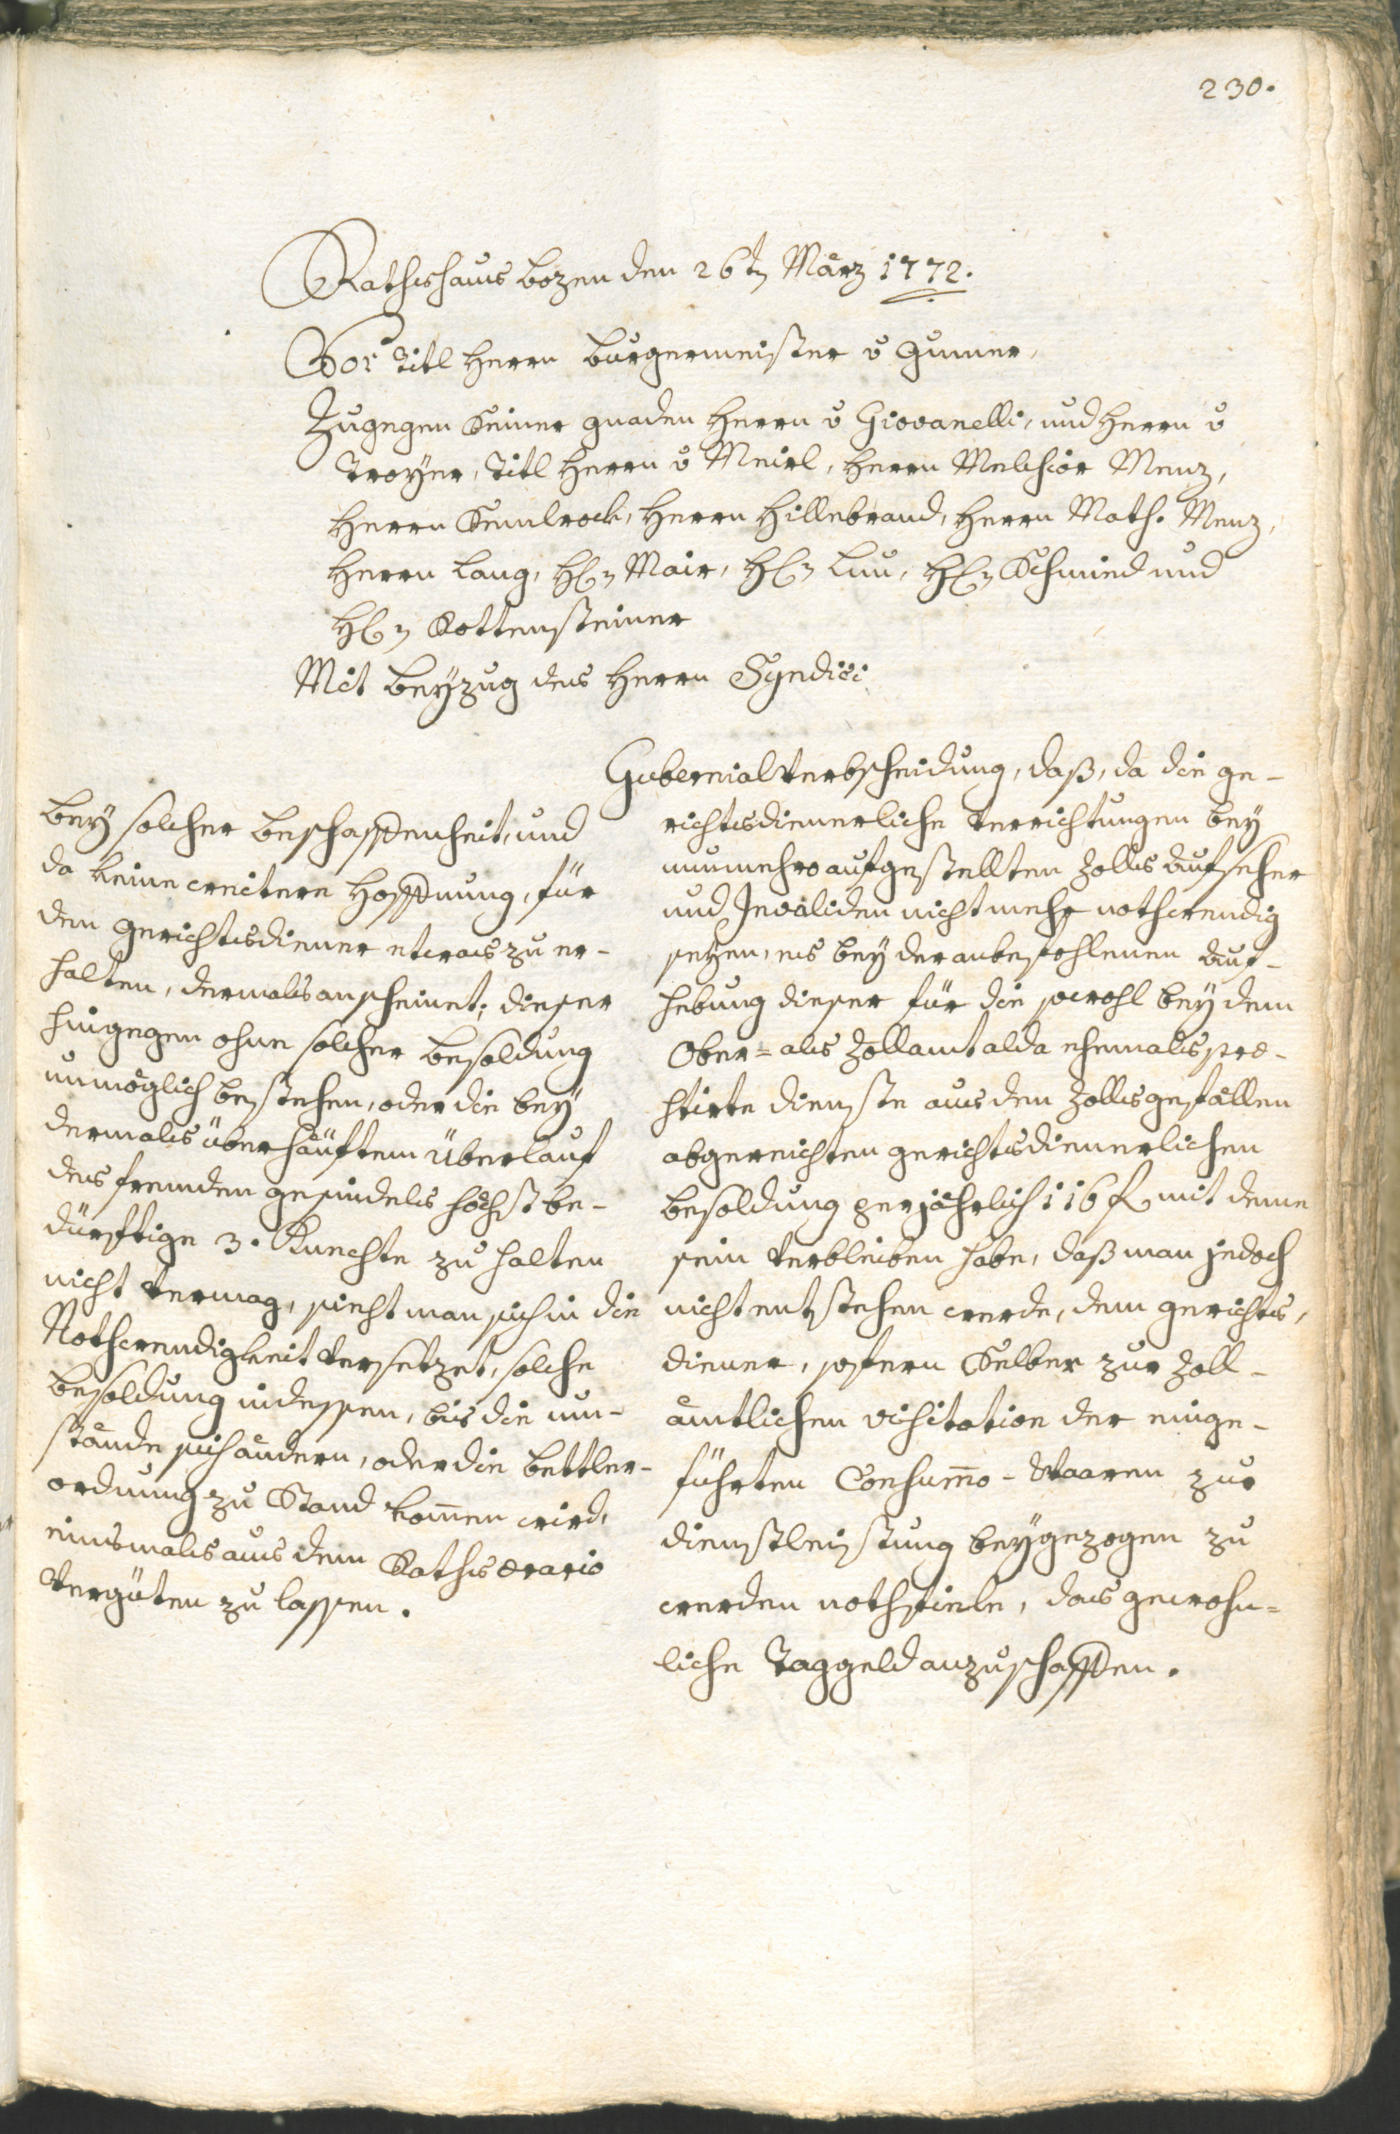 230.
Rathshaus Bozen den 26tn März 1772.
Vor Titl Herrn Burgermeister v Gumer,
Zugegen Seiner gnaden Herrn v Giovanelli, und Herrn v
Troyer, Titl Herrn v Meirl, Herrn Melchior Menz,
Herrn Hillebrand, Herrn Math. Menz,
Herrn Lang, H: Mair, H: H: Schmied und
H: Rottensteiner
Mit Beyzug des Herrn Syndici
Gubernialverbscheidung, daß, da die ge-
richtsdienerliche Verrichtungen bey
nunmehro aufgestellten Zolls Aufseher
und Invaliden nicht mehr nothwendig
seyen, es bey der anbefohlenen Auf-
hebung dieser für die sowohl bey dem
Ober- als Zollamt alda ehemals præ-
stirte Dienste aus den Zollsgefällen
abgereichten gerichtsdienerlichen
Besoldung per jährlich 116 f mit deme
sein Verbleiben habe, daß man jedoch
nicht entstehen werde, dem gerichts,
diener, sofern Selber zur Zoll-
ämtlichen visitation der einge-
führten Consumo-Waaren zur
dienstleistung beygezogen zu
werden nothfiele, das gewohn-
liche Taggeld anzuschaffen.
Bey solcher Beschaffenheit, und
da keine weitere Hoffnung, für
den gerichtsdiener etwas zu er-
halten, dermals anscheinet; dieser
hingegen ohne solcher Besoldung
unmöglich bestehen, oder die bey
dermals überhäuftem Überlauf
des fremden gesindels höchst be-
dürftige 3. Knechte zu halten
nicht vermag, sieht man sich in die
Nothwendigkeit versetzet, solche
Besoldung indessen, bis die um-
stände sich ändern, oder die Bettler-
ordnung zu Stand kommen wird,
einsmals aus dem Raths ærario
vergüten zu lassen.